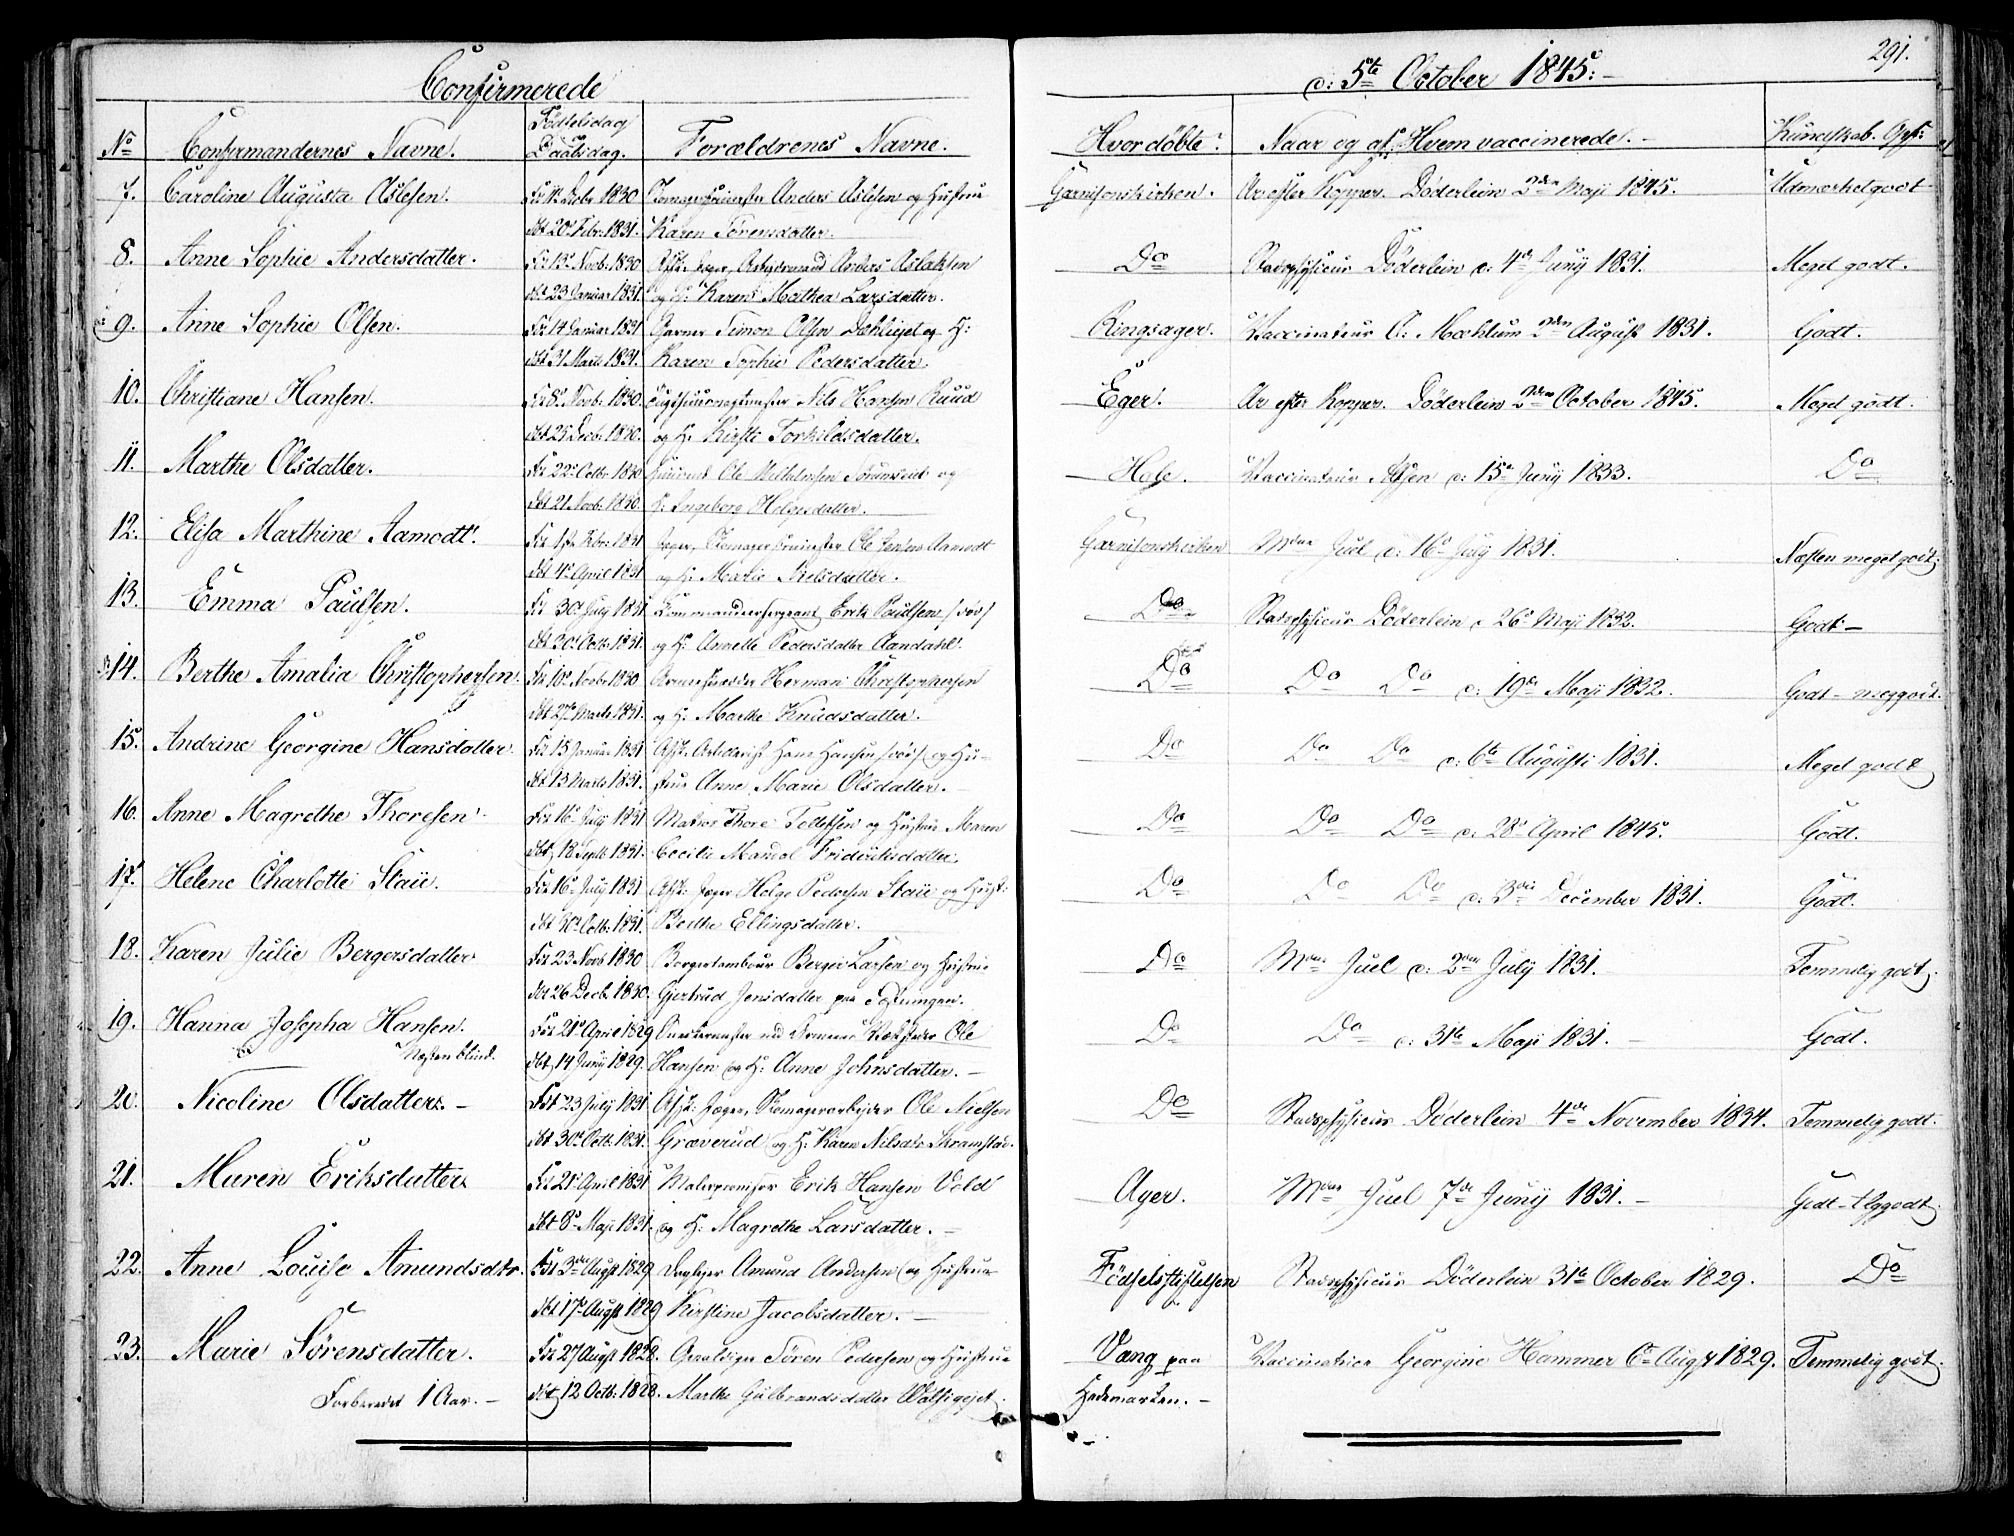 Confirmerede
d: 5te October 1845. 291.
No Confirmandernes Navne. Födselsdag Daabsdag. Forældrenes Navne. Hvor döbte: Naar og af Hvem vaccinerede. Kundskab. Opf:
7. Caroline Augusta Aslesen. Anders Aslesen og Hustrue Garnisonskirken. Ar efter Kopper. Döderlein 2den Maji 1845. Udmærket godt
dbt 20 Febr. 1831. Karen Sörensdatter.
8. Anne Sophie Andersdatter. Fdt 13 Novb. 1830 Anders Aslaksen Do Stadsphysicus Döderlein d. 4de Junij 1831. Meget godt.
dbt 23 Januar 1831 og H: Karen Mathea Larsdatter.
9. Anne Sophie Olsen. Fdt 14 Januar 1831 Simon Olsen og H: Ringsager. Vaccinateur C: Mæhlum 2den August 1831. Godt.
dbt 31 Marts 1831. Karen Sophie Pedersdatter.
10. Christiane Hansen. Fdt 8 Novb. 1830. Nils Hansen Ruud Eger. Ar efter Kopper. Döderlein 2den October 1845. Meget godt.
dbt 25 Decb. 1830. og H. Kirsti Torkildsdatter.
11. Marthe Olsdatter. Fdt 22 Octbr 1830 Ole og Hole. Vaccinateur d: 15de Junij 1833. Do
dbt 21 Novb. 1830. H: Ingeborg Helgesdatter.
12. Elisa Marthine Aamodt. Jæger, Ole Aamodt Garnisonskirken Mdm Juel d: 16 July 1831. Næsten meget godt.
dbt 4 April 1831 og H: Marie Nielsdatter.
13. Emma Paulsen. Fdt 30 July 1831 Commandeersergeant Erik Paulsen Do Stadsphysicus Döderlein d. 26 Maji 1832. Godt
dbt 30 Octb. 1831. og H. Annette Pedersdatter Aandahl.
14. Berthe Amalia Christophersen. Fdt 10 Novbr 1830 Herman Christophersen Do Do Do d: 19de Maji 1832. Godt - meg godt.
dbt 27de Marts 1831. og H. Marthe Knudsdatter.
15. Andrine Georgine Hansdatter. Fdt 15 Januar 1831 Hans Hansen og Hu- Do Do Do d: 6te Augusti 1831. Meget godt
dbt 13 Marts 1831. strue Anne Marie Olsdatter.
16. Anne Magrethe Thoresen. Fdt 16 July 1831 Matros Thore Tollefsen og Hustrue Maren Do Do Do d: 28 April 1845. Godt.
dbt 18 Septb. 1831. Cecilie Frideriksdatter.
17. Helene Charlotte Staie. Fdt 16 July 1831 Afsk. Jæger Helge Pedersen Staie og Hust: Do Do Do d: 3die December 1831. Godt.
dbt 30 Octb. 1831. Berthe Ellingsdatter.
18. Karen Julie Bergersdatter Fdt 23 Novb 1830 Borgertambour Berger Larsen og Hustrue Do Mdm Juel d: 2den July 1831. Temmelig godt.
dbt 26 Decb. 1830. Gjertrud Jensdatter paa Fæstningen.
19. Hanna Josepha Hansen. Fdt 21 April 1829 Ole Do Do d: 31te Maji 1831. Godt.
Næsten blind. dbt 14 Junij 1829. Hansen og H: Anne Johnsdatter.
20. Nicoline Olsdatter. Fdt 23 July 1831 Afsk: Jæger, Skomagerarbejder Ole Nielsen Do Stadsphysicus Döderlein 4de November 1834. Temmelig godt.
dbt 30 Octb. 1831. Græverud og H: Karen Nilsdtr Skramstad.
21. Maren Eriksdatter Fdt 21 April 1831 Erik Hansen Vold Ager. Mdm Juel 7de Junij 1831. Godt - Mg godt.
dbt 8 Maji 1831. og H: Magrethe Larsdatter.
22. Anne Louise Amundsdtr. Fdt 3die Augst 1829 Amund Andersen og Hustrue Födselsstiftelsen Stadsphysicus Döderlein 31te October 1829. Do
dbt 17 Augst 1829 Kirstine Jacobsdatter.
23. Marie Sörensdatter. Fdt 27 Augst 1828. Sören Pedersen og Hustrue Vang paa Vaccinatrice Georgine Hammer 6te Augst 1829. Temmelig godt.
Forberedet 1 Aar. dbt 12 Octb. 1828. Marthe Gulbrandsdatter Hedemarken.